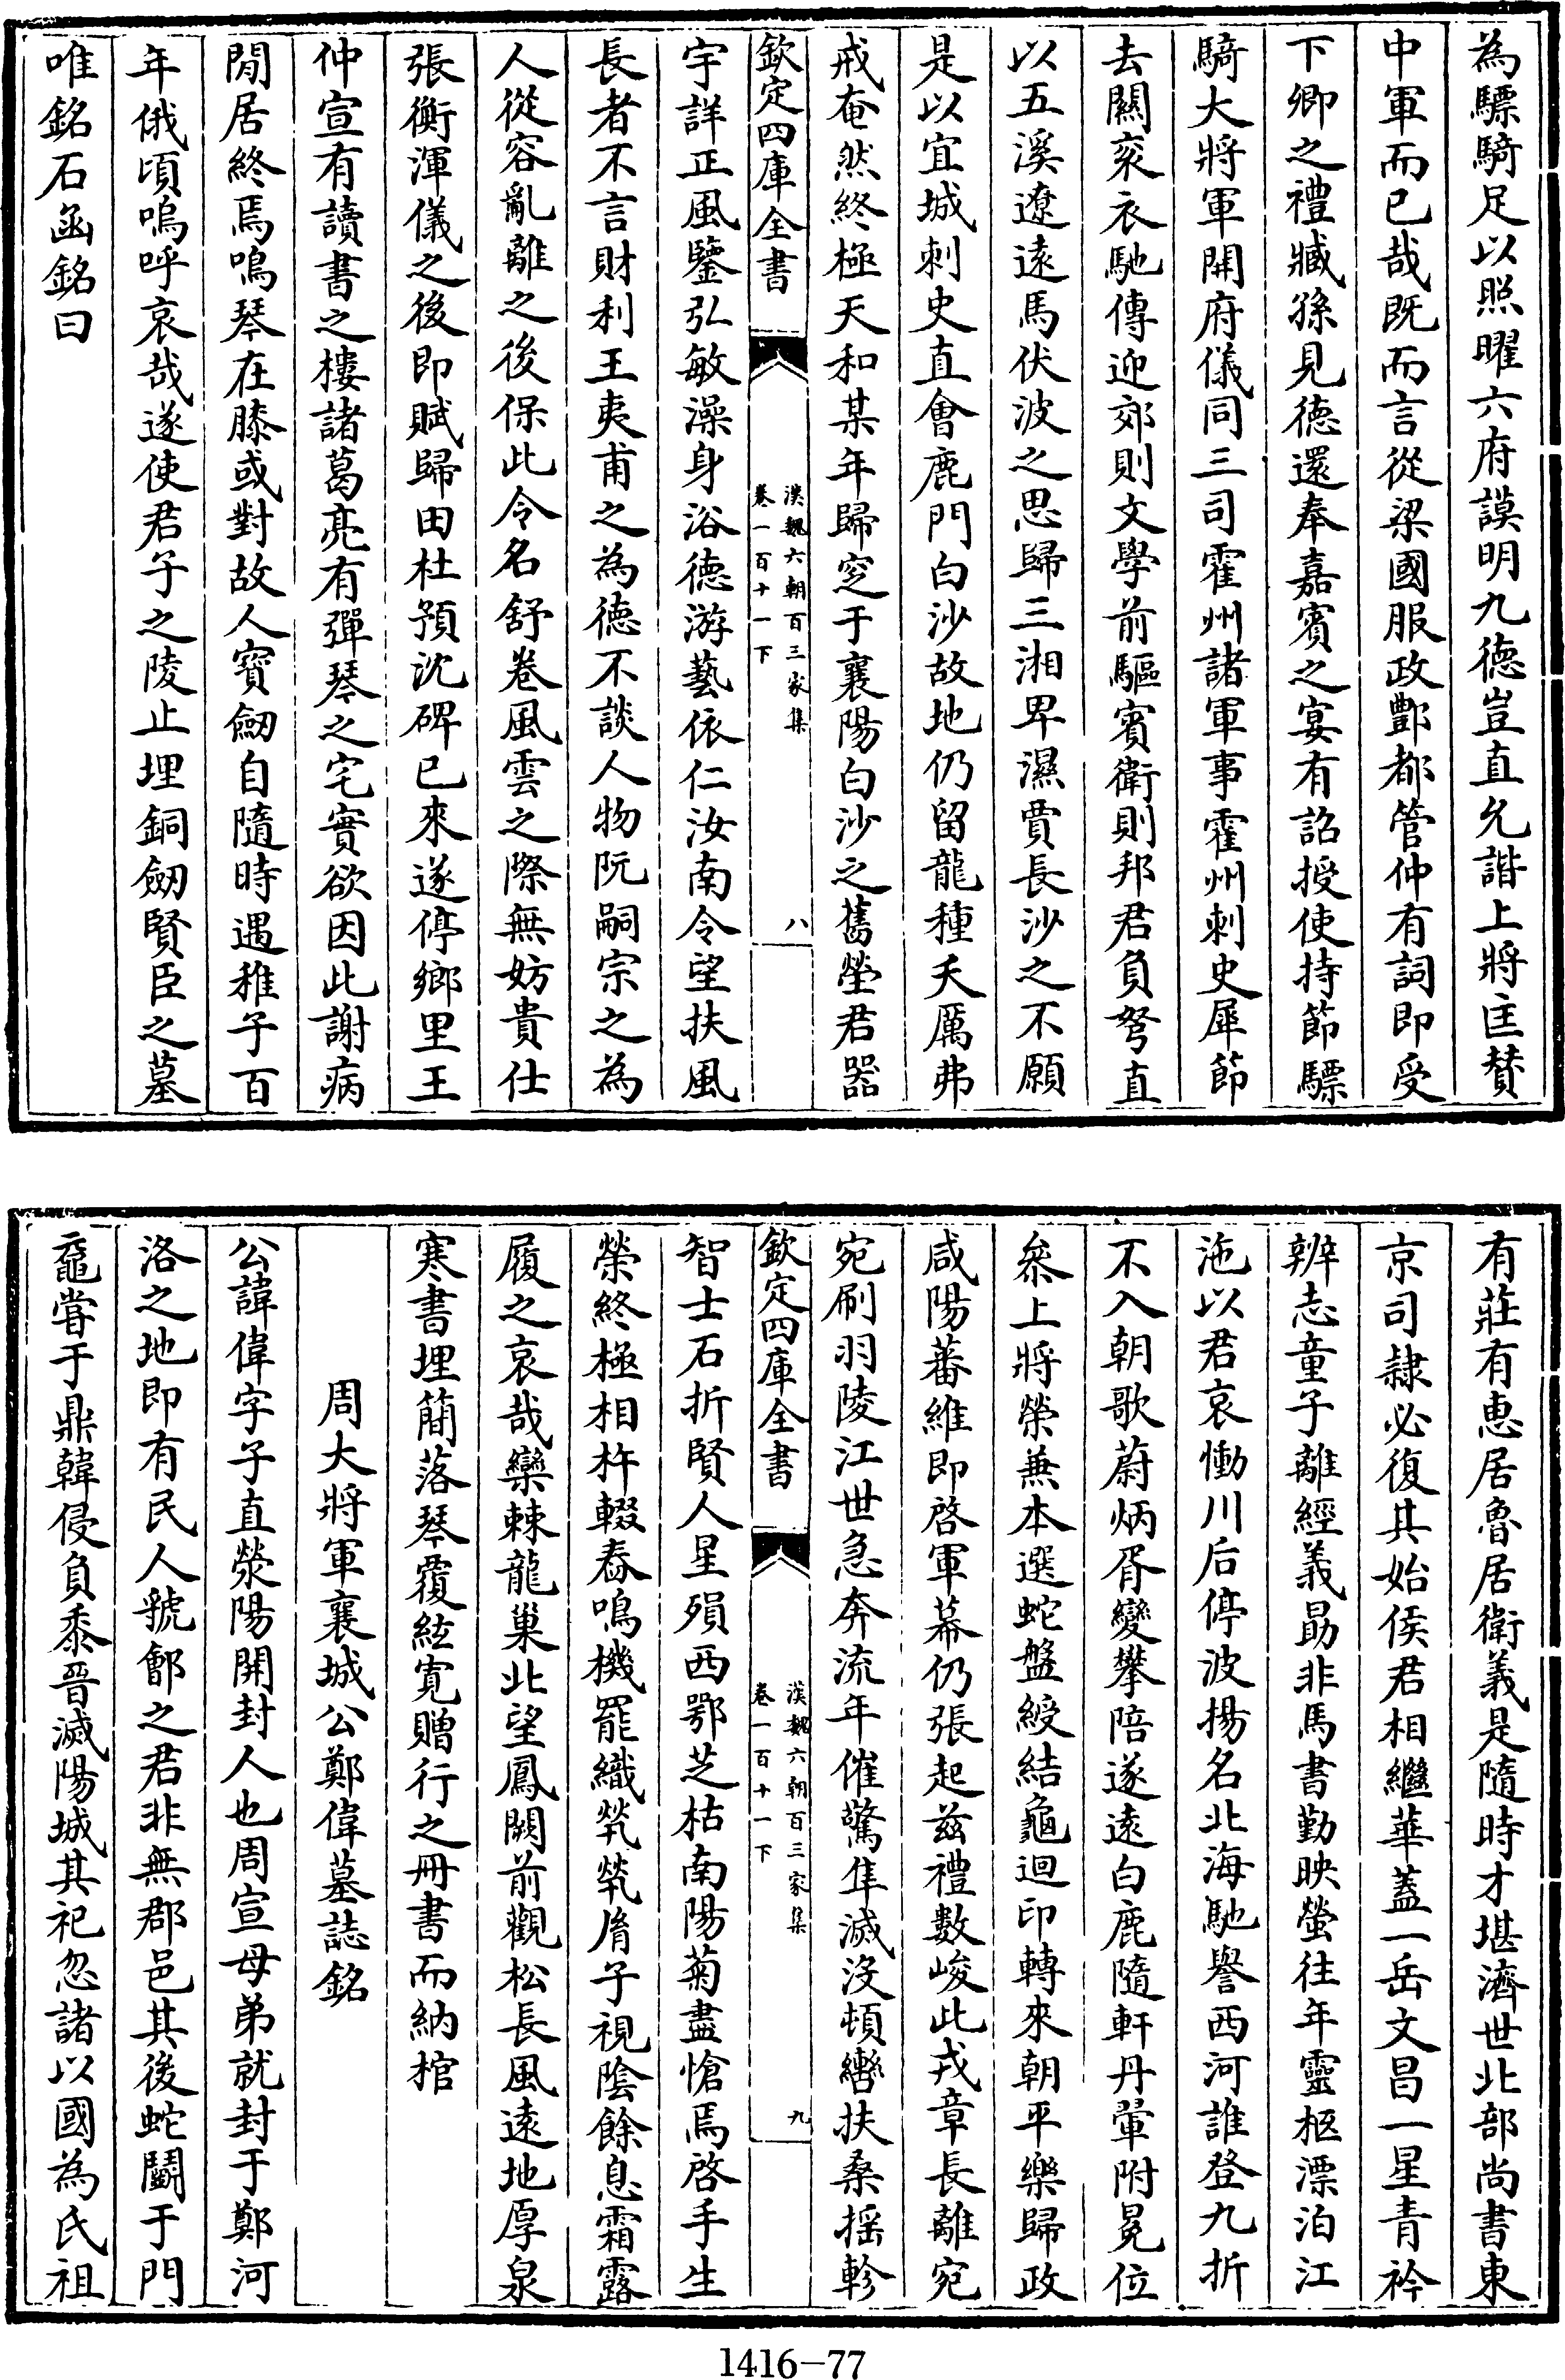 為驃騎足以照曜六府謨明九德豈直允諧上將匡賛
中軍而已哉既而言從梁國服政酆都管仲有詞即受
下卿之禮臧孫見德還奉嘉賓之宴有詔授使持節驃
騎大將軍開府儀同三司霍州諸軍事霍州刺史犀節
去闗衮衣馳傳迎郊則文學前驅賓衛則邦君負弩直
以五溪遼遠馬伏波之思歸三湘卑濕賈長沙之不願
是以宜城刺史直會鹿門白沙故地仍留龍種夭厲弗
戒奄然終極天和某年歸窆于襄陽白沙之舊塋君器
欽定四庫全書
漢魏六朝百三家集
卷一百十一下
八
宇詳正風鑒弘敏澡身浴德游藝依仁汝南令望扶風
長者不言財利王夷甫之為德不談人物阮嗣宗之為
人從容亂離之後保此令名舒卷風雲之際無妨貴仕
張衡渾儀之後即賦歸田杜預沈碑已來遂停鄉里王
仲宣有讀書之樓諸葛亮有彈琴之宅實欲因此謝病
閒居終焉鳴琴在膝或對故人寶劒自隨時遇稚子百
年俄頃嗚呼哀哉遂使君子之陵止埋銅劒賢臣之墓
唯銘石函銘曰
有莊有惠居魯居衛義是隨時才堪濟世北部尚書東
京司隸必復其始侯君相繼華蓋一岳文昌一星青衿
辨志童子離經義勗非馬書勤映螢往年靈柩漂泊江
沲以君哀慟川后停波揚名北海馳譽西河誰登九折
不入朝歌蔚炳胥變攀陪遂遠白鹿隨軒丹翬附冕位
叅上將榮兼本選蛇盤綬結龜迴印轉來朝平樂歸政
咸陽蕃維即啓軍幕仍張起兹禮數峻此戎章長離宛
宛刷羽陵江世急奔流年催驚隼滅沒頓轡扶桑揺軫
欽定四庫全書
漢魏六朝百三家集
卷一百十一下
九
智士石折賢人星殞西鄂芝枯南陽菊盡愴焉啓手生
榮終極相杵輟舂鳴機罷織煢煢𦙍子視陰餘息霜露
履之哀哉欒棘龍巢北望鳳闕前觀松長風遠地厚泉
寒書埋簡落琴覆絃寛贈行之冊書而納棺
周大將軍襄城公鄭偉墓誌銘
公諱偉字子直滎陽開封人也周宣母弟就封于鄭河
洛之地即有民人虢鄶之君非無郡邑其後蛇鬭于門
黿嘗于鼎韓侵負黍晉滅陽城其祀忽諸以國為氏祖
1416-77